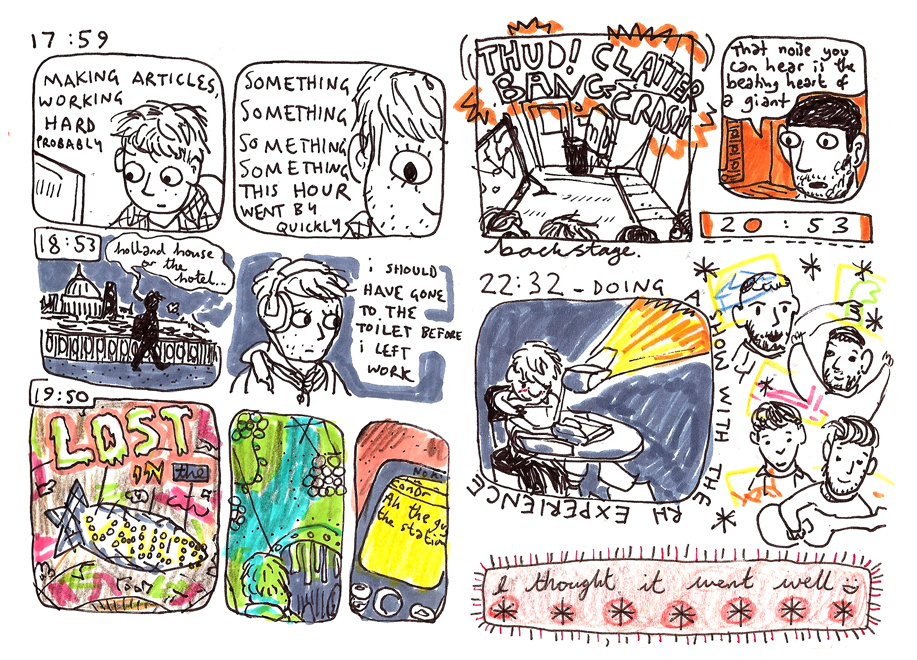 17:59
MAKING ARTICLES,
WORKING
HARD
PROBABLY
SOMETHING
SOMETHING
SOMETHING
SOMETHING
THIS HOUR
WENT BY
QUICKLY
18:53
holland house
or the
hotel..
i SHOULD
HAVE GONE
TO THE
TOILET BEFORE
i LEFT
WORK
19:50
LOST
IN the
Ah the gu
the station
THUD! CLATTER
BANG CRASH
backstage.
That noise you
can hear is the
beating heart of
a giant
20:53
22:32 - DOING A
SHOW WITH THE
RH EXPERIENCE
I thought it went well :)